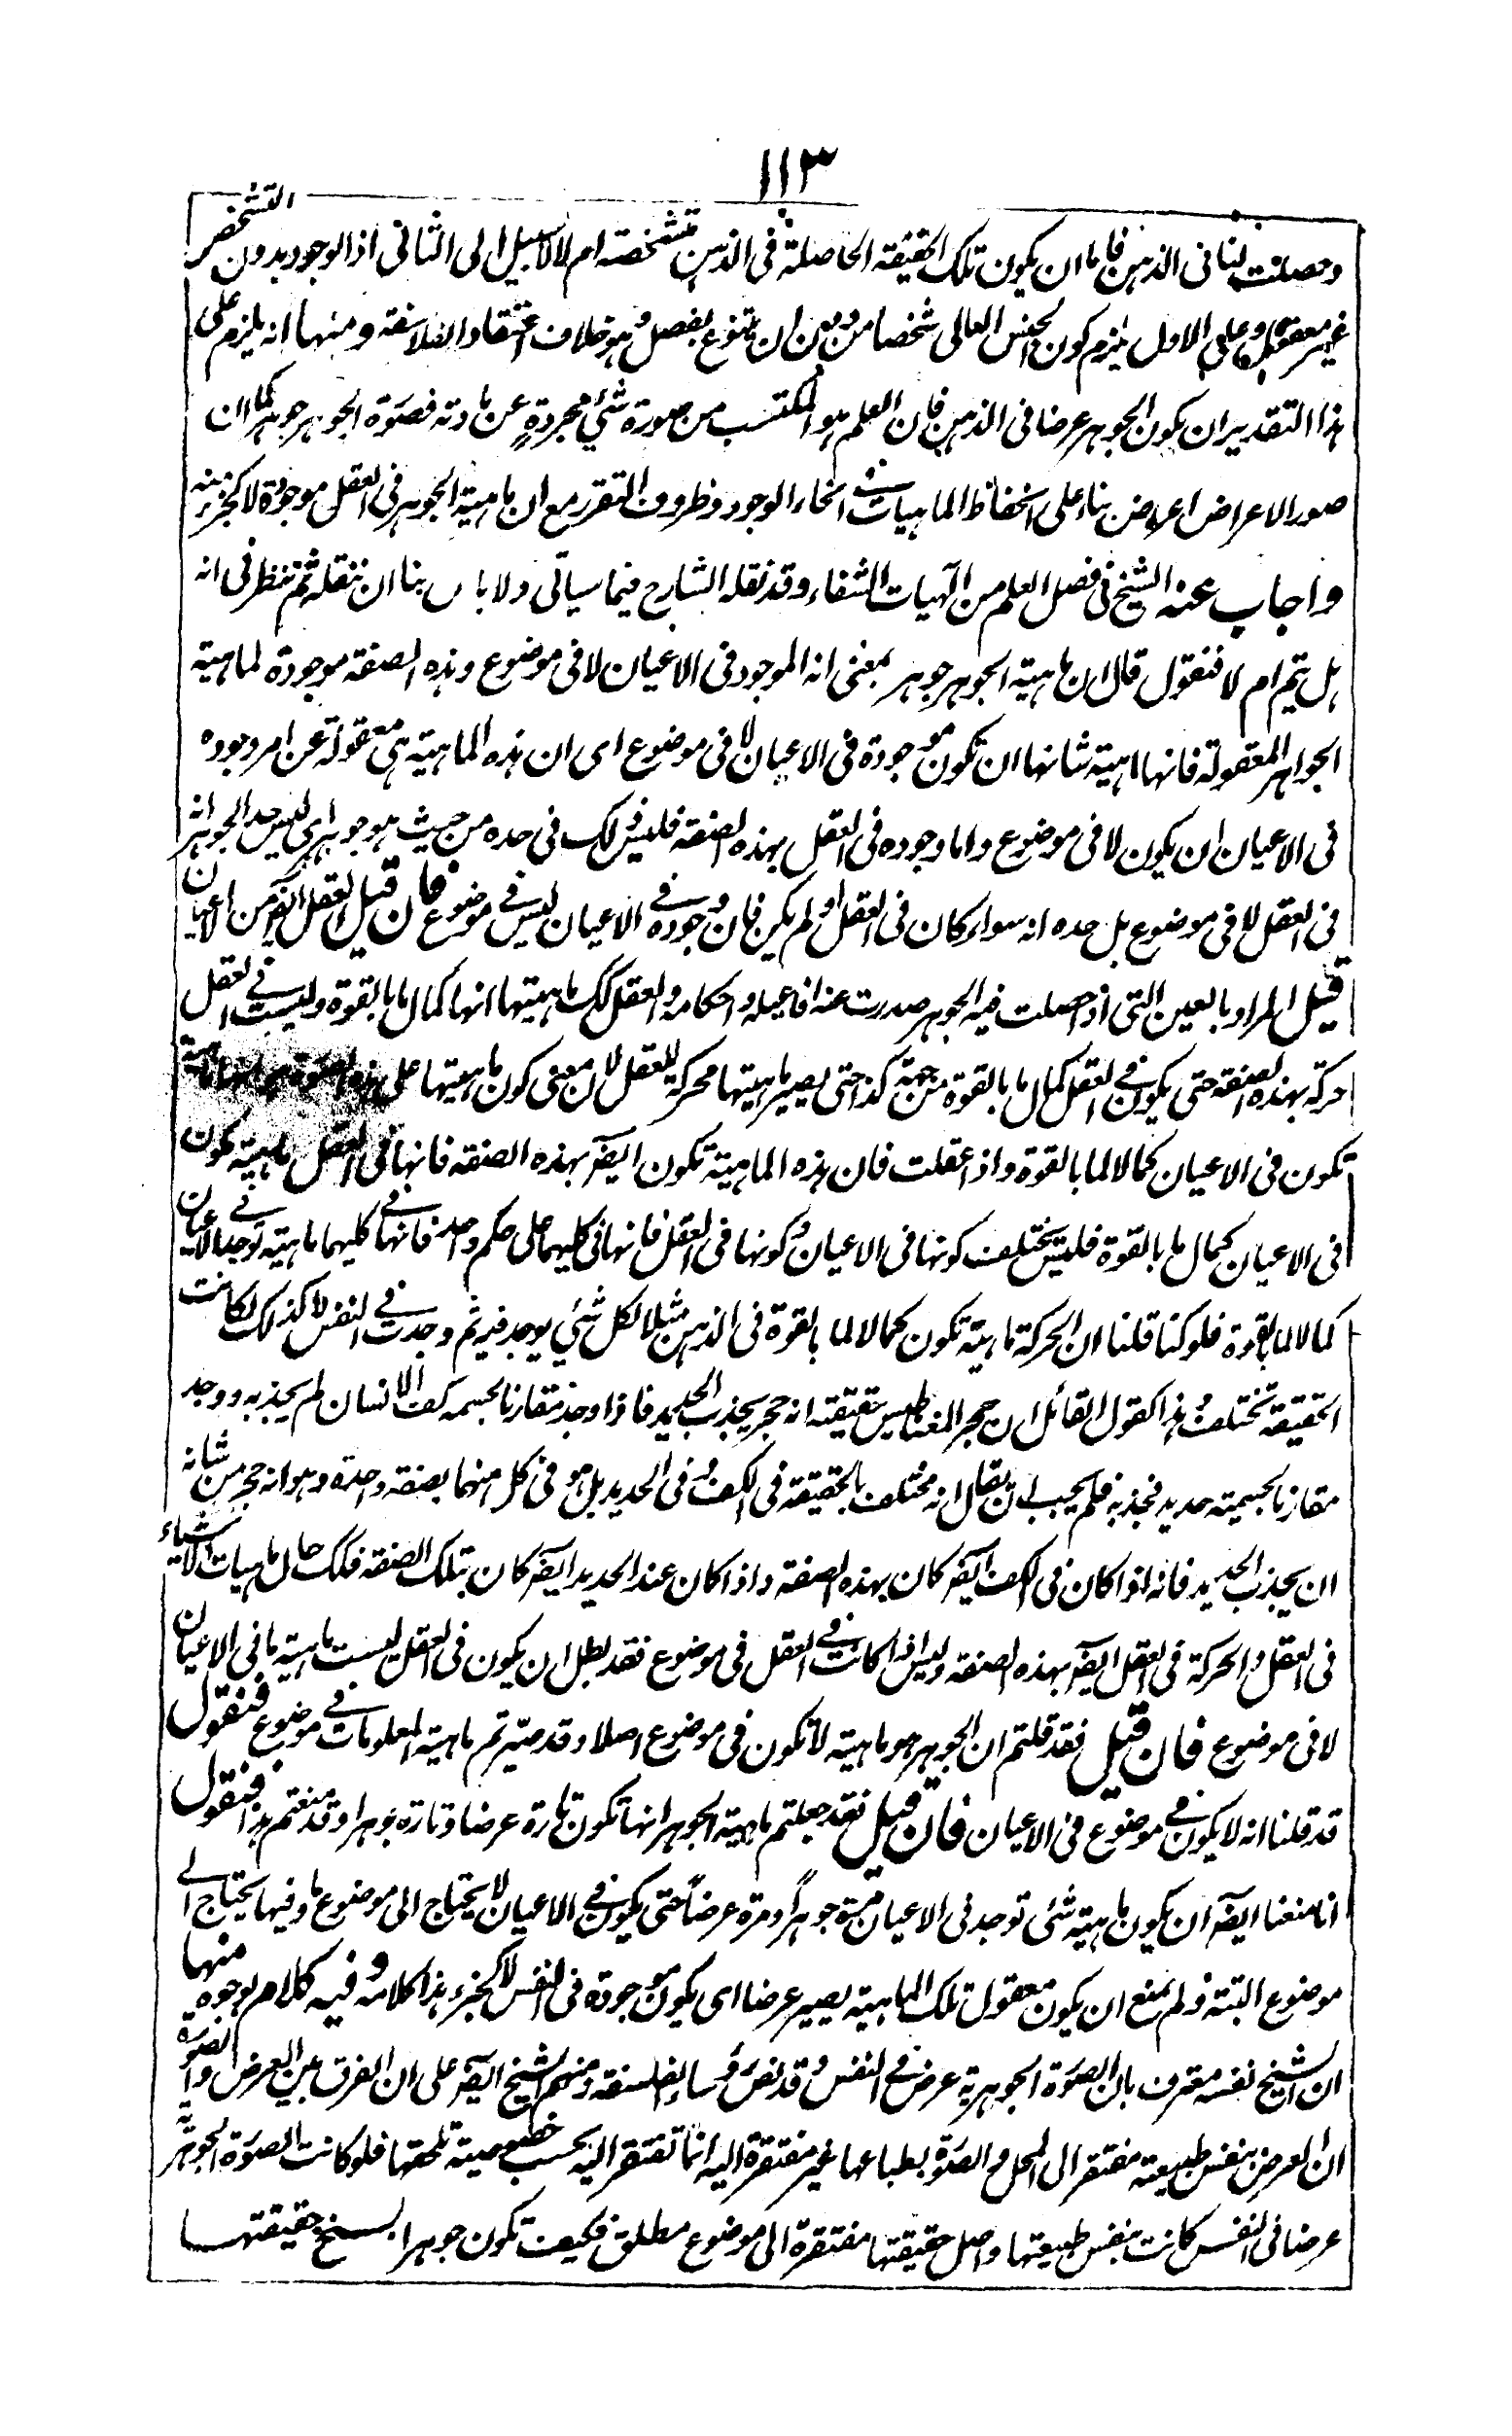 ١١٣
وحصلت لنا فى الذهن فاما ان يكون تلك الحقيقة الحاصلة فى الذهن متشخصة ام لا لاسبيل الى الثانى اذ الوجود بدون التشخص
غير معقول وعلى الاول يلزم كون الجنس العالى شخصا من دون ان يتنوع بفصل وهو خلاف اعتقاد الفلاسفة ومنها انه يلزم على
هذا التقدير ان يكون الجوهر عرضا فى الذهن فان العلم هو المكتسب من صورة شئ مجردةٍ عن مادته فصورة الجوهر جوهر كما ان
صور الاعراض اعراض بناء على انحفاظ الماهيات فى انحاء الوجود وظروف التقرر مع ان ماهية الجوهر فى العقل موجودة لا كجزء منه
واجاب عنه الشيخ فى فصل العلم من الٓهيات الشفاء وقد نقله الشارح فيما سياتى ولا باس بنا ان ننقله ثم ننظر فى انه
هل يتم ام لا فنقول قال ان ماهية الجوهر جوهر بمعنى انه الموجود فى الاعيان لا فى موضوع وهذه الصفة موجودة لماهية
الجواهر المعقولة فانها ماهية شانها ان تكون موجودة فى الاعيان لا فى موضوع اى ان هذه الماهية هى معقولة عن امر وجوده
فى الاعيان ان يكون لا فى موضوع واما وجوده فى العقل بهذه الصفة فليس ذلك فى حده من حيث هو جوهر اى ليس حد الجوهر انه
فى العقل لا فى موضوع بل حده انه سواء كان فى العقل او لم يكن فان وجوده فى الاعيان ليس فى موضوع فان قيل العقل ايضا من الاعيان
قيل المراد بالعين التى اذ حصلت فيه الجوهر صدرت عنه افاعيله واحكامه والعقل كك ماهيتها انها كمال ما بالقوة وليست فى العقل
حركة بهذه الصفة حتى يكون فى العقل كمال ما بالقوة من جهة كذا حتى يصير ماهيتها محركة للعقل لان معنى كون ماهيتها على هذه الصفة هو انها ماهية
تكون فى الاعيان كمالا لما بالقوة واذ اعقلت فان هذه الماهية تكون ايضا بهذه الصفة فانها فى العقل ماهية تكون
فى الاعيان كمال ما بالقوة فليس يختلف كونها فى الاعيان وكونها فى العقل فانها فى كليهما على حكم واحد فانها فى كليهما ماهية توجد فى الاعيان
كمالا لما بالقوة فلو كنا قلنا ان الحركة ماهية تكون كمالا لما بالقوة فى الذهن مثلا لكل شئ يوجد فيه ثم وجدت فى النفس لا كذلك لكانت
الحقيقة تختلف وهذا كقول القائل ان حجر المغناطيس حقيقته انه حجر يجذب الحديد فاذا وجد مقارنا لجسمه كف الانسان لم يجذبه ووجد
مقارنا لجسمية حديد فجذبه فلم يجب ان يقال انه مختلف بالحقيقة فى الكف وفى الحديد بل هو فى كل منهما بصفة واحدة وهو انه حجر من شانه
ان يجذب الحديد فانه اذا كان فى الكف ايضا كان بهذه الصفة واذا كان عند الحديد ايضا كان بتلك الصفة فكك حال ماهيات الاشياء
فى العقل والحركة فى العقل ايضا بهذه الصفة وليس اذا كانت فى العقل فى موضوع فقد بطل ان يكون فى العقل ليست ماهية ما فى الاعيان
لا فى موضوع فان قيل فقد قلتم ان الجوهر هو ماهية لا تكون فى موضوع اصلا وقد صيرتم ماهية المعلومات فى موضوع فنقول
قد قلنا انه لا يكون فى موضوع فى الاعيان فان قيل فقد جعلتم ماهية الجوهر انها تكون تارة عرضا وتارة جوهرا وقد منعتم هذا فنقول
انا منعنا ايضا ان يكون ماهية شئ توجد فى الاعيان مرة جوهراً ومرة عرضاً حتى يكون فى الاعيان لا يحتاج الى موضوع ما وفيها يحتاج الى
موضوع البتة ولم نمنع ان يكون معقول تلك الماهية يصير عرضا اى يكون موجودة فى النفس لا كجزء هذا كلامه وفيه كلام بوجوه منها
ان الشيخ نفسه معترف بان الصورة الجوهرية عرض فى النفس وقد نص رؤساء الفلسفة ومنهم الشيخ ايضا على ان الفرق بين العرض والصورة
ان العرض بنفس طبيعته مفتقر الى المحل والصورة بطباعها غير مفتقرة اليه انما تفتقر اليه بحسب خصوصية تلحقها فلو كانت الصورة الجوهرية
عرضا فى النفس كانت بنفس طبيعتها واصل حقيقتها مفتقرة الى موضوع مطلق فكيف تكون جوهرا بسنخ حقيقتها